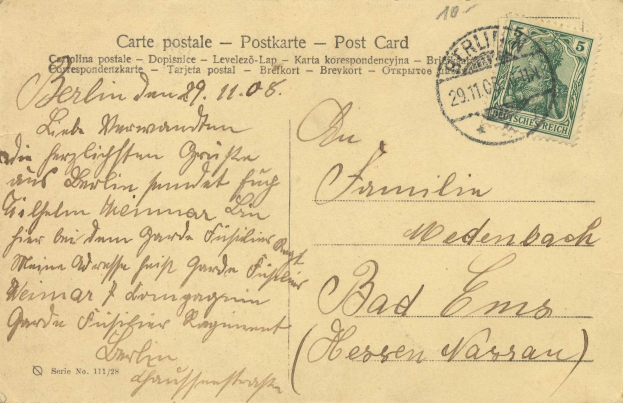 10-
Carte postale – Postkarte – Post Card
Cartolina postale – Dopisnice – Levelező-Lap – Karta korespondencyjna –
Correspondenzkarte – Tarjeta postal – Brefkort – Brevkort – Открытое
BERLIN N
29.11.08
5
DEUTSCHES REICH
Berlin den 29.11.08.
Liebe Verwandten
die herzlichsten Grüße
aus Berlin sendet Euch
Wilhelm Weimar Bin
hier bei dem Garde Füsilier Regt
Meine Adresse heist Garde Füsilier
Weimar 7 Compagnie
Garde Füsilier Regiment
Berlin
Chausseestraße
An
Familie
Medenbach
Bad Ems
(Hessen Nassau)
Serie No. 111/28